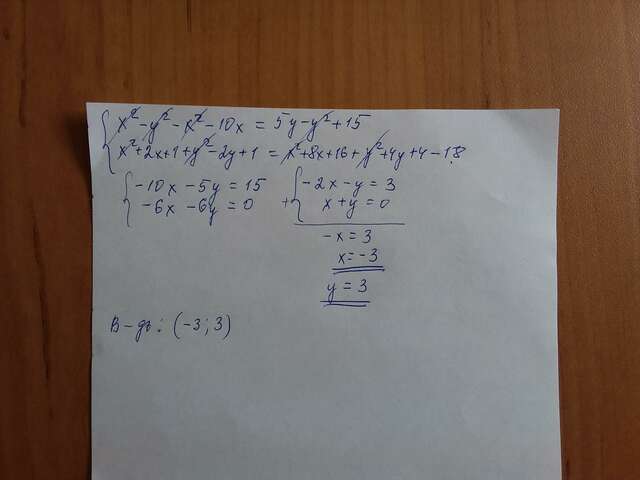 x² - y² - x² - 10x = 5y - y² + 15
x² + 2x + 1 + y² - 2y + 1 = x² + 8x + 16 + y² + 4y + 4 - 18
-10x - 5y = 15
-6x - 6y = 0
+ -2x - y = 3
x + y = 0
-x = 3
x = -3
y = 3
В-дь: (-3; 3)